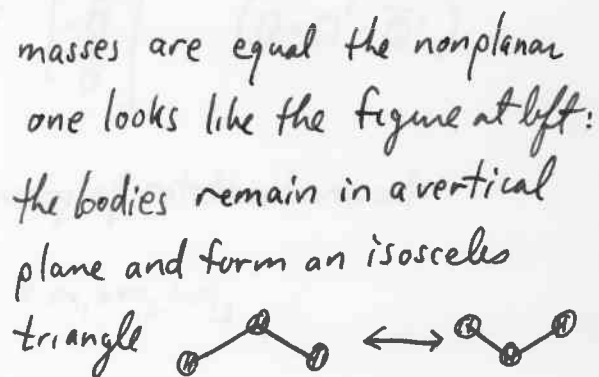 masses are equal the nonplanar
one looks like the figure at left:
the bodies remain in a vertical
plane and form an isosceles
triangle